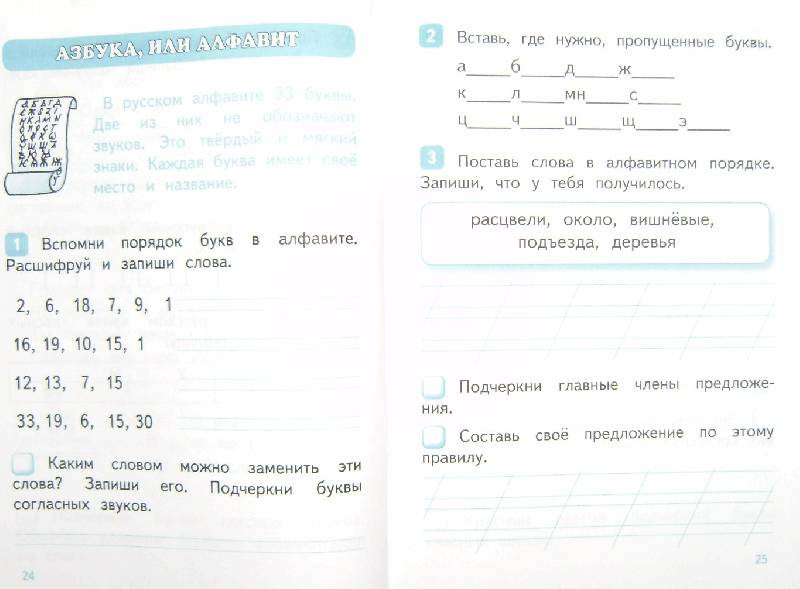 АЗБУКА, ИЛИ АЛФАВИТ
В русском алфавите 33 буквы.
Две из них не обозначают
звуков. Это твёрдый и мягкий
знаки. Каждая буква имеет своё
место и название.
1 Вспомни порядок букв в алфавите.
Расшифруй и запиши слова.
2, 6, 18, 7, 9, 1
16, 19, 10, 15, 1
12, 13, 7, 15
33, 19, 6, 15, 30
Каким словом можно заменить эти
слова? Запиши его. Подчеркни буквы
согласных звуков.
24
2 Вставь, где нужно, пропущенные буквы.
а_____б_____д_____ж_____
к_____л_____мн_____с_____
ц_____ч_____ш_____щ_____э_____
3 Поставь слова в алфавитном порядке.
Запиши, что у тебя получилось.
расцвели, около, вишнёвые,
подъезда, деревья
Подчеркни главные члены предложе-
ния.
Составь своё предложение по этому
правилу.
25